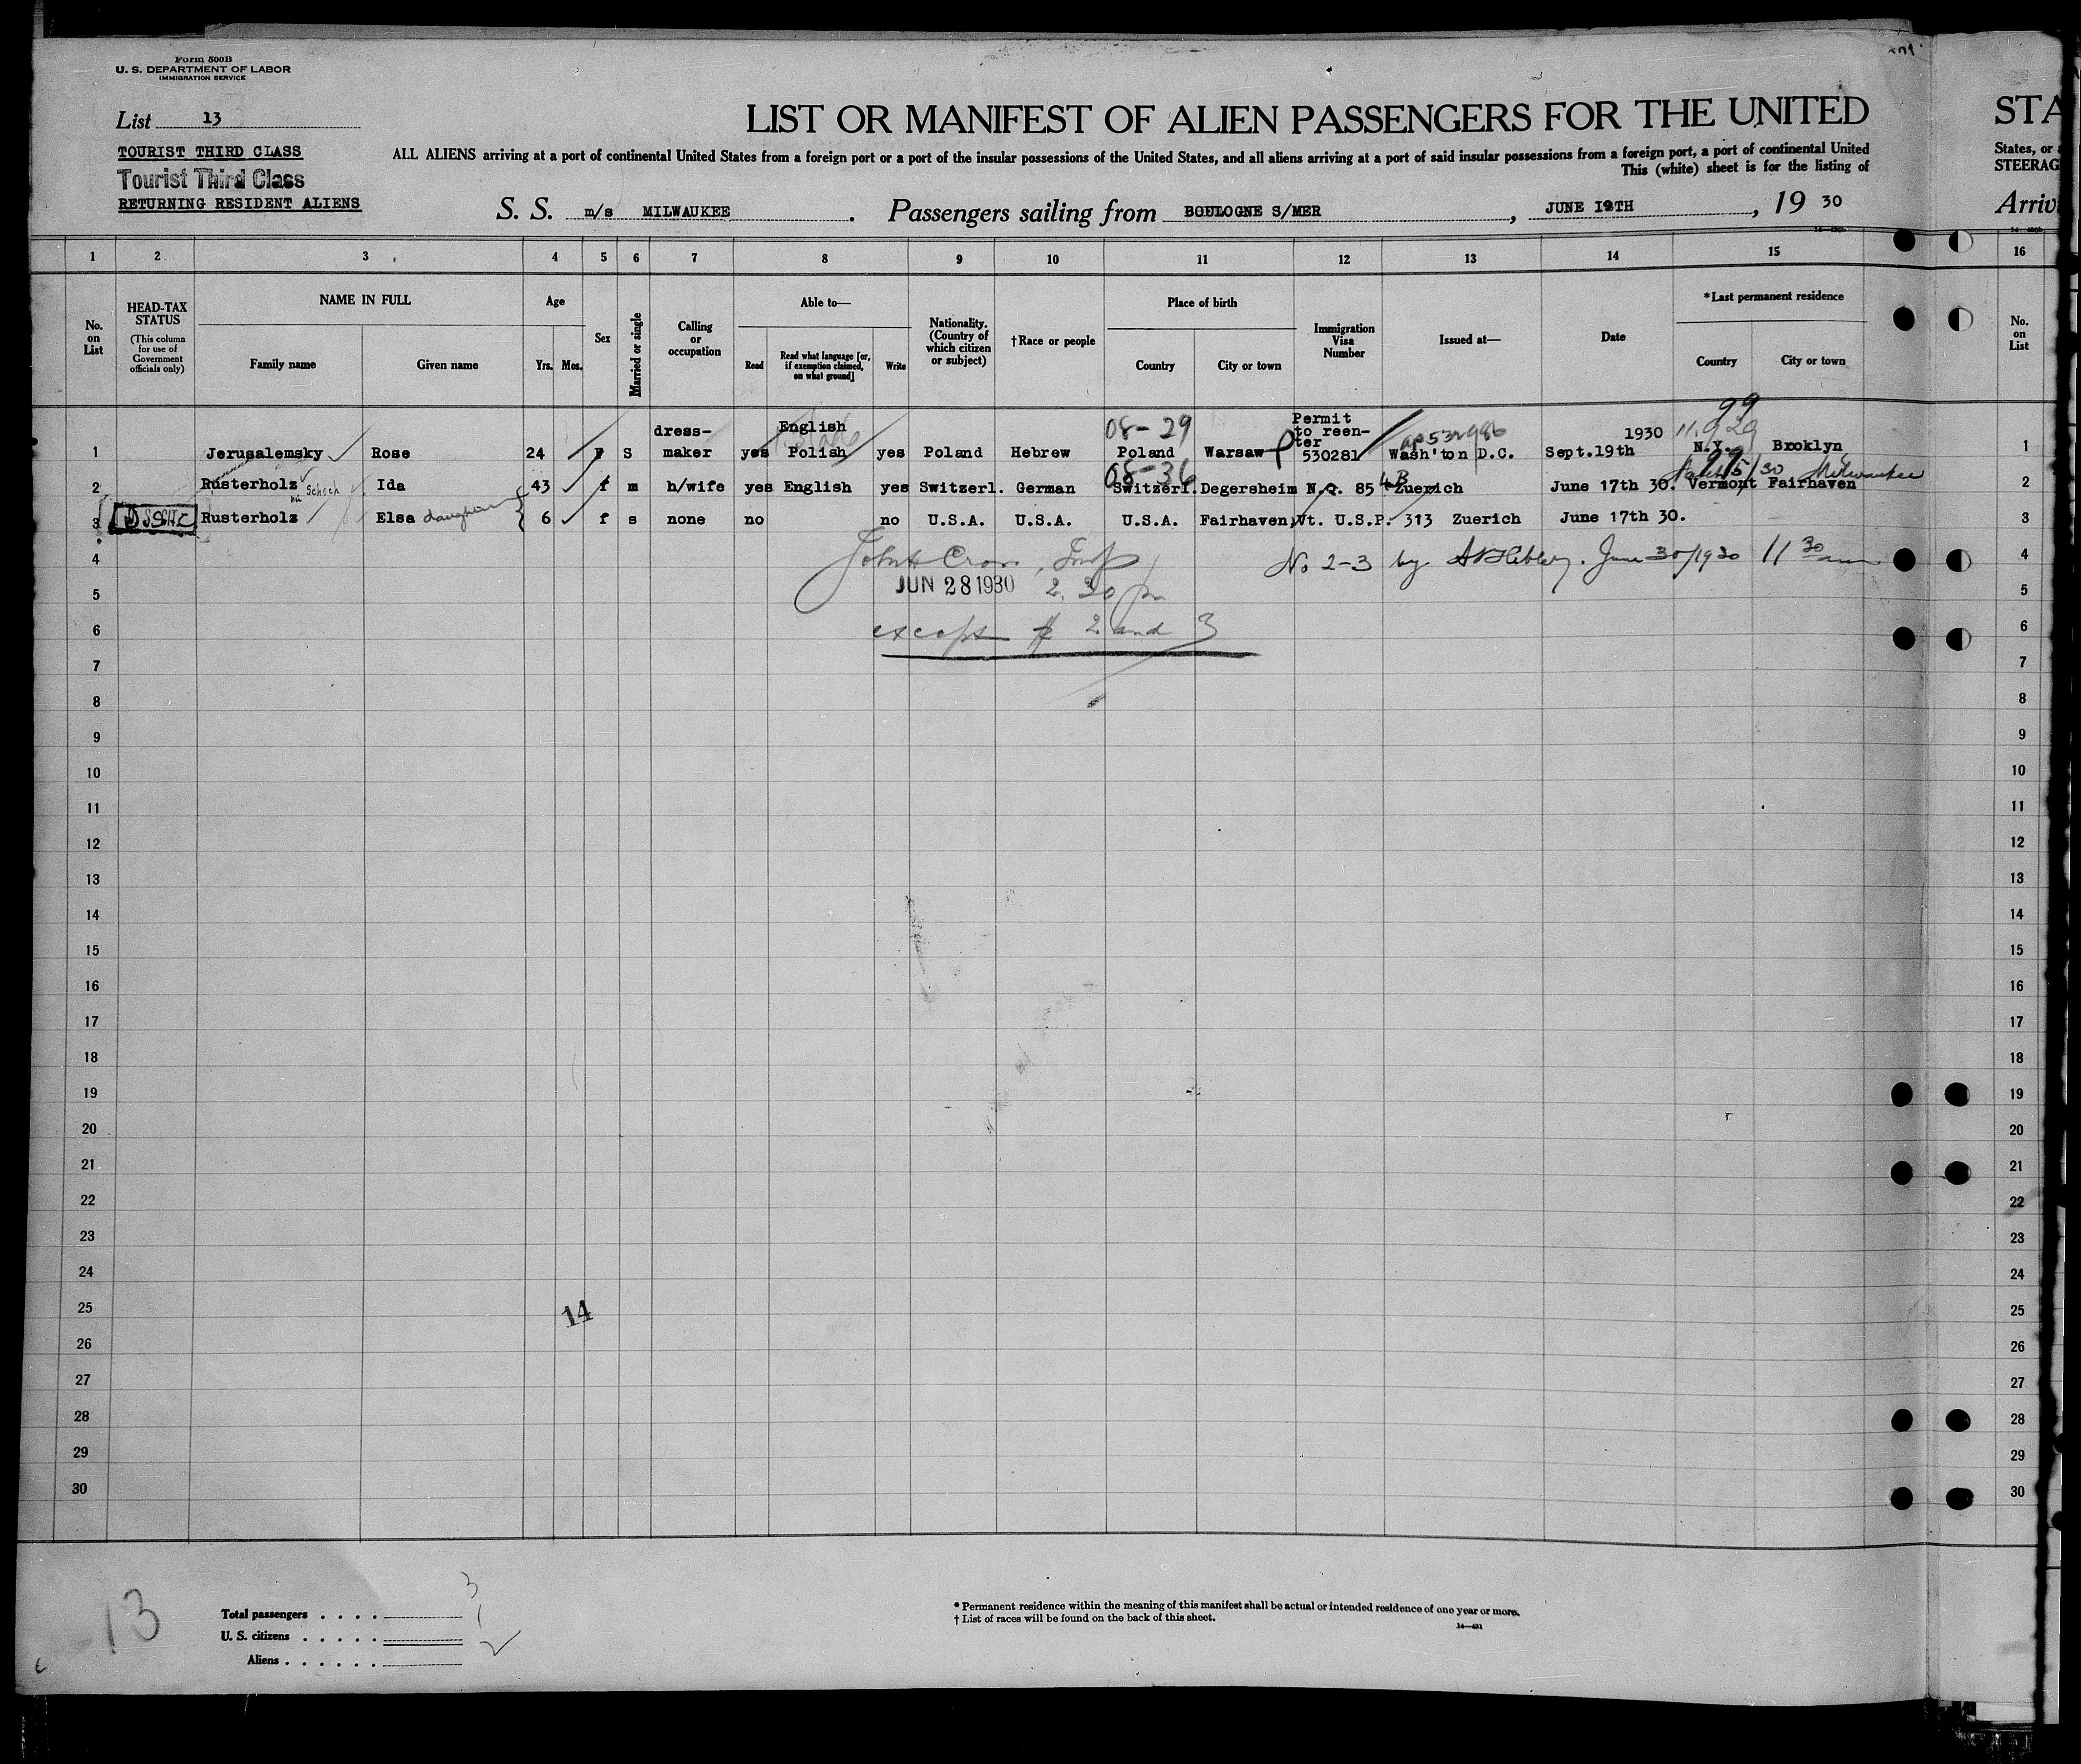 Form 500B
U. S. DEPARTMENT OF LABOR
IMMIGRATION SERVICE
List 13
TOURIST THIRD CLASS
Tourist Third Class
RETURNING RESIDENT ALIENS
LIST OR MANIFEST OF ALIEN PASSENGERS FOR THE UNITED
STA
ALL ALIENS arriving at a port of continental United States from a foreign port or a port of the insular possessions of the United States, and all aliens arriving at a port of said insular possessions from a foreign port, a port of continental United
States, or
This (white) sheet is for the listing of
STEERAG
S. S. m/s MILWAUKEE . Passengers sailing from BOULOGNE S/MER , JUNE 19TH , 19 30
Arriv
1 2 3 4 5 6 7 8 9 10 11 12 13 14 15 16
No. on List
HEAD-TAX STATUS
(This column for use of Government officials only)
NAME IN FULL
Family name Given name
Age
Yrs. Mos.
Sex
Married or single
Calling or occupation
Able to—
Read Read what language [or, if exemption claimed, on what ground] Write
Nationality. (Country of which citizen or subject)
†Race or people
Place of birth
Country City or town
Immigration Visa Number
Issued at—
Date
*Last permanent residence
Country City or town
No. on List
99
08-29
1 Jerusalemsky Rose 24 F S dress-maker yes English Polish yes Poland Hebrew Poland Warsaw Permit to reen-ter 530281 Wash'ton D.C. Sept.19th 1930 N.Y. Brooklyn 1
08-36
2 Rusterholz Schoch Ida 43 f m h/wife yes English yes Switzerl. German Switzerl. Degersheim N.Q. 85 Zuerich June 17th 30. Vermont Fairhaven 2
3 Rusterholz Elsa daughter 6 f s none no no U.S.A. U.S.A. U.S.A. Fairhaven,Vt. U.S.P. 313 Zuerich June 17th 30. 3
4 No 2-3 by June 30/1930 11 30 am 4
5 JUN 28 1930 2.30 pm 5
6 except # 2 and 3 6
7 7
8 8
9 9
10 10
11 11
12 12
13 13
14 14
15 15
16 16
17 17
18 18
19 19
20 20
21 21
22 22
23 23
24 24
25 25
14
26 26
27 27
28 28
29 29
30 30
13
Total passengers . . . . 3
U. S. citizens . . . . . 1
Aliens . . . . . . 2
* Permanent residence within the meaning of this manifest shall be actual or intended residence of one year or more.
† List of races will be found on the back of this sheet.
14—431